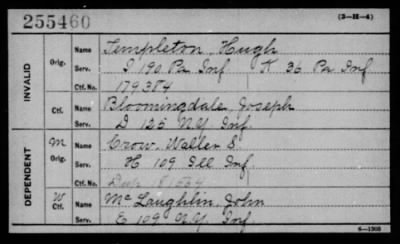 255460 (3-H-4)
INVALID
Orig. Name Templeton, Hugh
Serv. I 190 Pa Inf K 36 Pa Inf
Ctf. No. 179384
Ctf. Name Bloomingdale, Joseph
Serv. D 125 N.Y. Inf.
DEPENDENT
M Orig. Name Crow, Waller S.
Serv. H 109 Ill Inf.
Ctf. No. Dup.
W Ctf. Name McLaughlin, John
Serv. E 109 N.Y. Inf.
6-1308